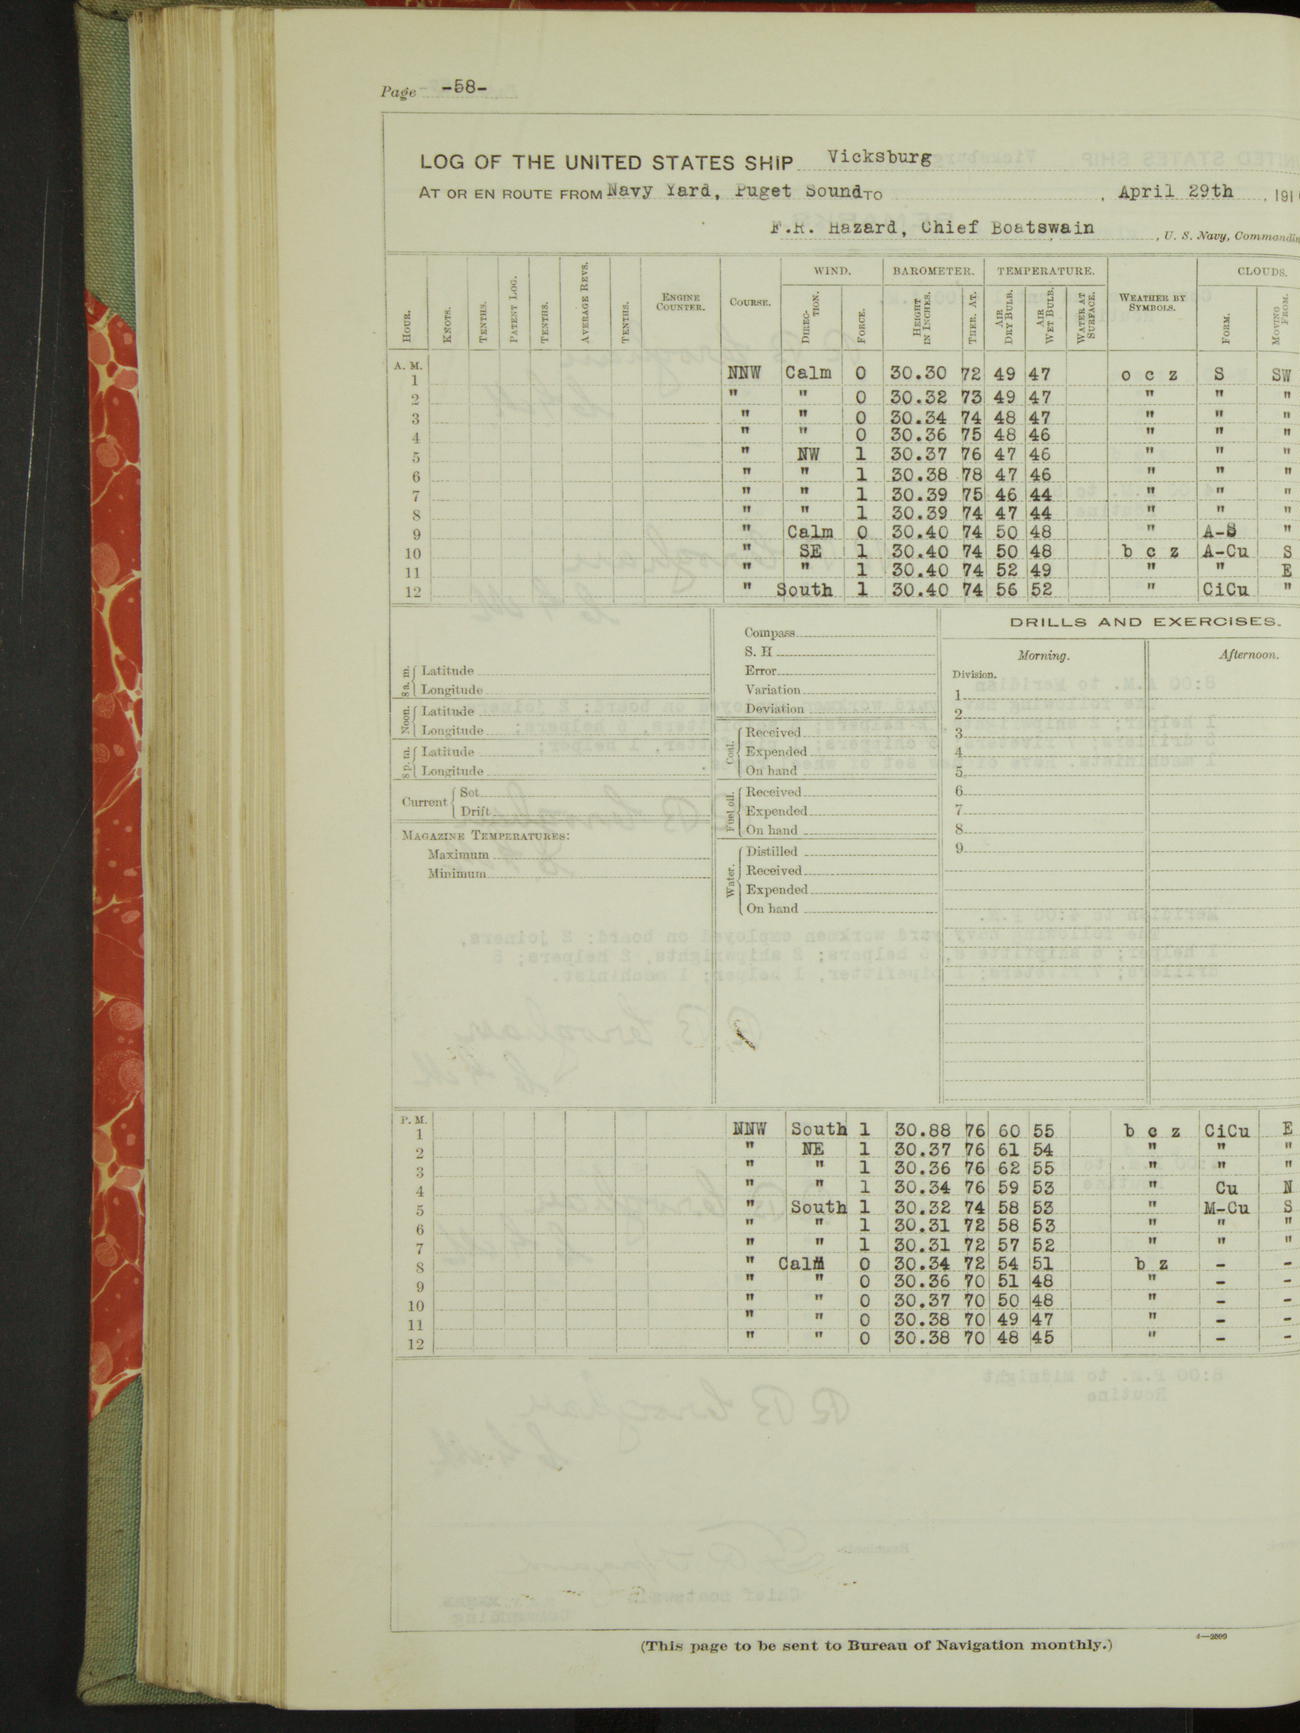 Page -58-
LOG OF THE UNITED STATES SHIP Vicksburg
AT OR EN ROUTE FROM Navy Yard, Puget Sound TO , April 29th , 191
F.R. Hazard, Chief Boatswain , U. S. Navy, Commandin
HOUR. KNOTS. TENTHS. PATENT LOG. TENTHS. AVERAGE REVS. TENTHS. ENGINE COUNTER. COURSE. WIND. DIRECTION. FORCE. BAROMETER. HEIGHT IN INCHES. THER. AT. TEMPERATURE. AIR DRY BULB. AIR WET BULB. WATER AT SURFACE. WEATHER BY SYMBOLS. CLOUDS. FORM. MOVING FROM.
A. M.
1 NNW Calm 0 30.30 72 49 47 o c z S SW
2 " " 0 30.32 73 49 47 " " "
3 " " 0 30.34 74 48 47 " " "
4 " " 0 30.36 75 48 46 " " "
5 " NW 1 30.37 76 47 46 " " "
6 " " 1 30.38 78 47 46 " " "
7 " " 1 30.39 75 46 44 " " "
8 " " 1 30.39 74 47 44 " " "
9 " Calm 0 30.40 74 50 48 " A-S "
10 " SE 1 30.40 74 50 48 b c z A-Cu S
11 " " 1 30.40 74 52 49 " " E
12 " South 1 30.40 74 56 52 " CiCu "
8 a. m. Latitude
Longitude
Noon. Latitude
Longitude
8 p. m. Latitude
Longitude
Current Set
Drift
MAGAZINE TEMPERATURES:
Maximum
Minimum
Compass
S. H
Error
Variation
Deviation
Coal. Received
Expended
On hand
Fuel oil. Received
Expended
On hand
Water. Distilled
Received
Expended
On hand
DRILLS AND EXERCISES.
Morning. Afternoon.
Division.
1
2
3
4
5
6
7
8
9
P. M.
1 NNW South 1 30.88 76 60 55 b c z CiCu E
2 " NE 1 30.37 76 61 54 " " "
3 " " 1 30.36 76 62 55 " " "
4 " " 1 30.34 76 59 53 " Cu N
5 " South 1 30.32 74 58 53 " M-Cu S
6 " " 1 30.31 72 58 53 " " "
7 " " 1 30.31 72 57 52 " " "
8 " Calm 0 30.34 72 54 51 b z - -
9 " " 0 30.36 70 51 48 " - -
10 " " 0 30.37 70 50 48 " - -
11 " " 0 30.38 70 49 47 " - -
12 " " 0 30.38 70 48 45 " - -
(This page to be sent to Bureau of Navigation monthly.)
4—2609